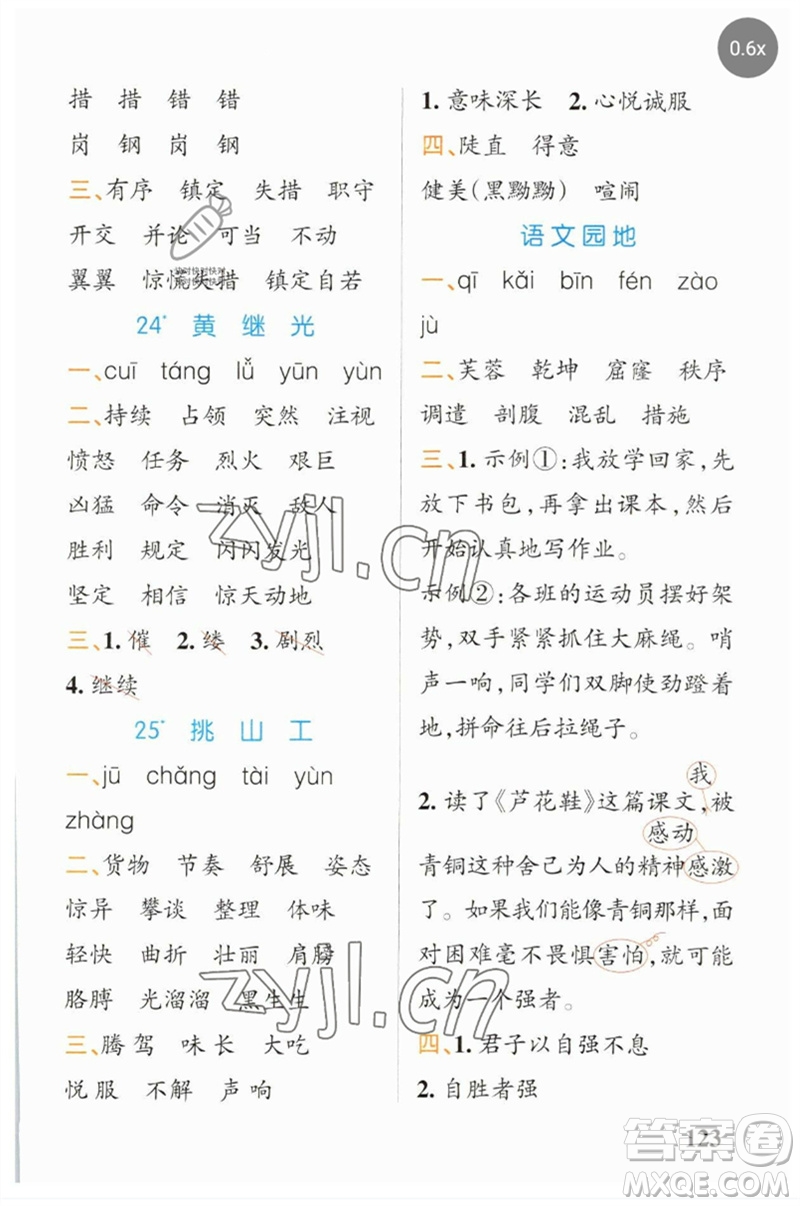 0.6x
措 措 错 错
岗 钢 岗 钢
三、有序 镇定 失措 职守
开交 并论 可当 不动
翼翼 惊慌失措 镇定自若
24* 黄 继 光
一、cuī táng lǚ yūn yùn
二、持续 占领 突然 注视
愤怒 任务 烈火 艰巨
凶猛 命令 消灭 敌人
胜利 规定 闪闪发光
坚定 相信 惊天动地
三、1. 催 2. 缕 3. 剧烈
4. 继续
25* 挑 山 工
一、jū chǎng tài yùn
zhàng
二、货物 节奏 舒展 姿态
惊异 攀谈 整理 体味
轻快 曲折 壮丽 肩膀
胳膊 光溜溜 黑生生
三、腾 驾 味 长 大吃
悦 服 不解 声 响
1. 意味深长 2. 心悦诚服
四、陡直 得意
健美(黑黝黝) 喧闹
语文园地
一、qī kǎi bīn fén zào
jù
二、芙蓉 乾坤 窟窿 秩序
调遣 剖腹 混乱 措施
三、1. 示例①:我放学回家,先
放下书包,再拿出课本,然后
开始认真地写作业。
示例②:各班的运动员摆好架
势,双手紧紧抓住大麻绳。哨
声一响,同学们双脚使劲蹬着
地,拼命往后拉绳子。
我
2. 读了《芦花鞋》这篇课文,被
感动
青铜这种舍己为人的精神感激
了。如果我们能像青铜那样,面
对困难毫不畏惧害怕,就可能
成为一个强者。
四、1. 君子以自强不息
2. 自胜者强
123
zyjl.cn
zyjl.cn
答案卷
MXQE.COM